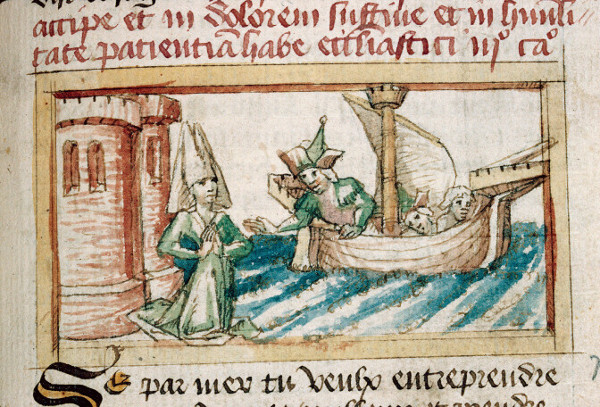 accipe et in dolorem sustine et in humili
tate patientiam habe eccliastici ijº caº
Se par mer tu veulx entreprendre